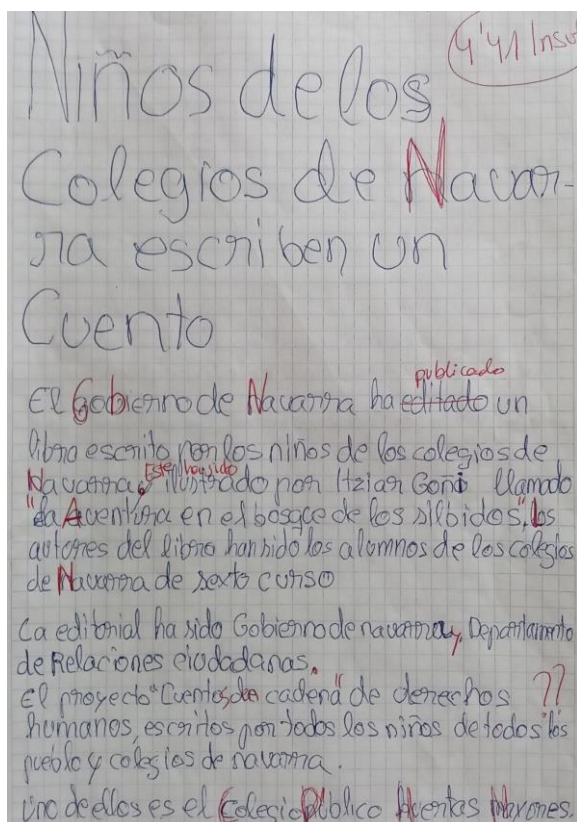 4'41 Insu
Niños de los
Colegios de Navar-
ra escriben un
Cuento
publicado
El Gobierno de Navarra ha editado un
libro escrito por los niños de los colegios de
Este ha sido
Navarra, ilustrado por Itziar Goñi llamado
"La Aventura en el bosque de los silbidos", los
autores del libro han sido los alumnos de los colegios
de Navarra de sexto curso
La editorial ha sido Gobierno de navarra y, Departamento
de Relaciones ciudadanas.
El proyecto "Cuentos de cadena" de derechos ??
humanos, escritos por todos los niños de todos los
pueblo y colegios de navarra.
Uno de ellos es el Colegio Público Huertas Mayores.